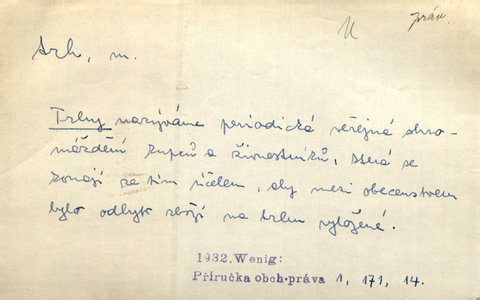 U
práv.
trh, m.
Trhy nazýváme periodická veřejná shro-
máždění kupců a živnostníků, která se
konají za tím účelem, aby mezi obecenstvem
bylo odbyto zboží na trhu vyložené.
1932. Wenig:
Příručka obch-práva 1, 171, 14.